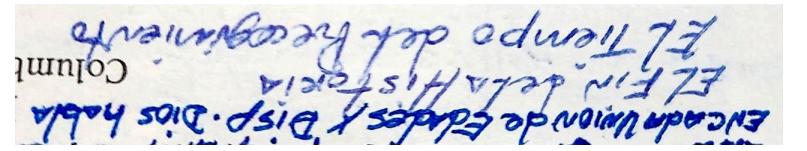 EN CADA UNION de Edades Y Disp. Dios habla
EL FIN de LA HISTORIA
Colum
EL Tiempo del Recogimiento